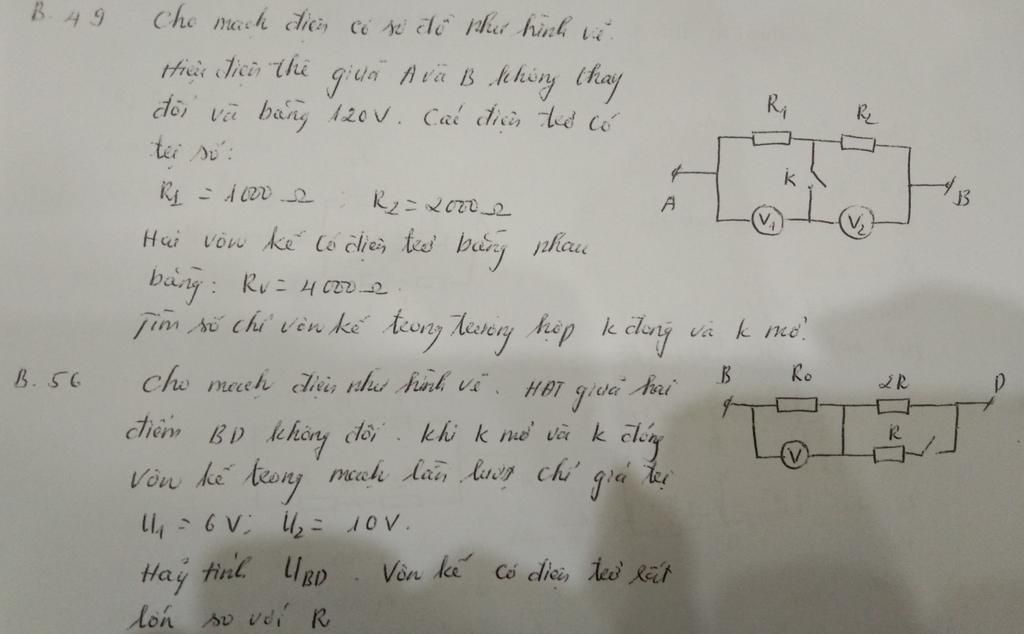 B. 49 Cho mạch điện có sơ đồ như hình vẽ.
Hiệu điện thế giữa A và B không thay
đổi và bằng 120V. Các điện trở có
trị số:
R1 = 1000 Ω ; R2 = 2000 Ω
Hai vôn kế có điện trở bằng nhau
bằng: Rv = 4000 Ω.
Tìm số chỉ vôn kế trong trường hợp k đóng và k mở.
R1 R2
K
A B
V1 V2
B. 56 Cho mạch điện như hình vẽ. HĐT giữa hai
điểm BD không đổi. Khi k mở và k đóng
vôn kế trong mạch lần lượt chỉ giá trị
U1 = 6 V; U2 = 10V.
Hãy tính UBD. Vôn kế có điện trở rất
lớn so với R
B R0 2R D
R
V